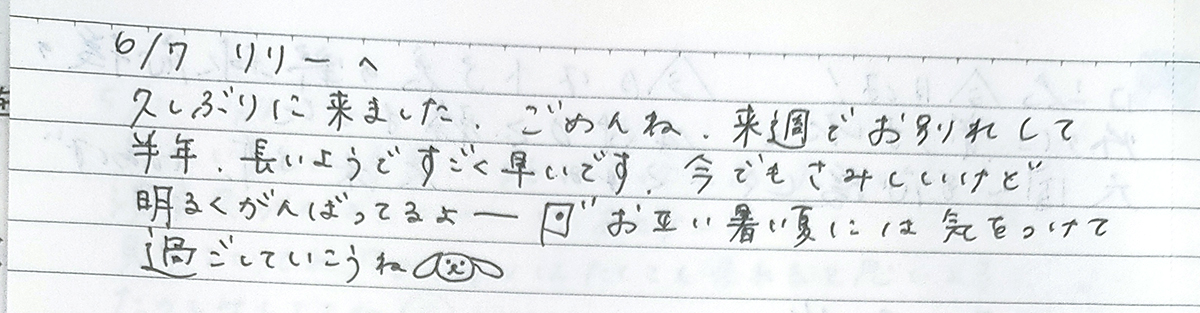 6/7 リリーへ
久しぶりに来ました、ごめんね、来週でお別れして
半年、長いようですごく早いです、今でもさみしいけど
明るくがんばってるよー お互い暑い夏には気をつけて
過ごしていこうね